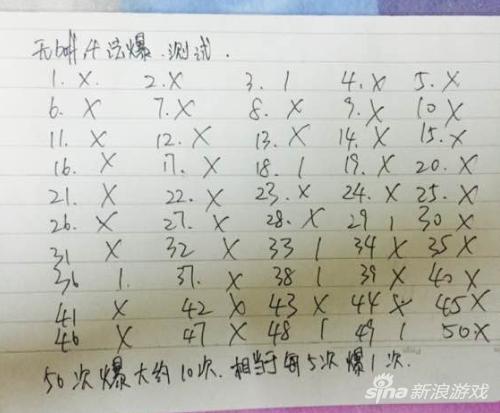 无buff 平法爆.测试.
1. X. 2. X 3. 1 4. X 5. X
6. X 7. X 8. X 9. X 10 X
11. X 12. X 13. X 14. X 15. X
16. X 17. X 18. 1 19. X 20. X
21. X 22. X 23. X 24. X 25. X
26. X 27. X 28. X 29 1 30 X
31 X 32 X 33 1 34 X 35 X
36 1. 37. X 38 1 39 X 40 X
41 X 42 X 43 X 44 X 45 X
46 X 47 X 48 1 49 1 50 X
50次爆大约10次.相当于每5次爆1次.
sina 新浪游戏